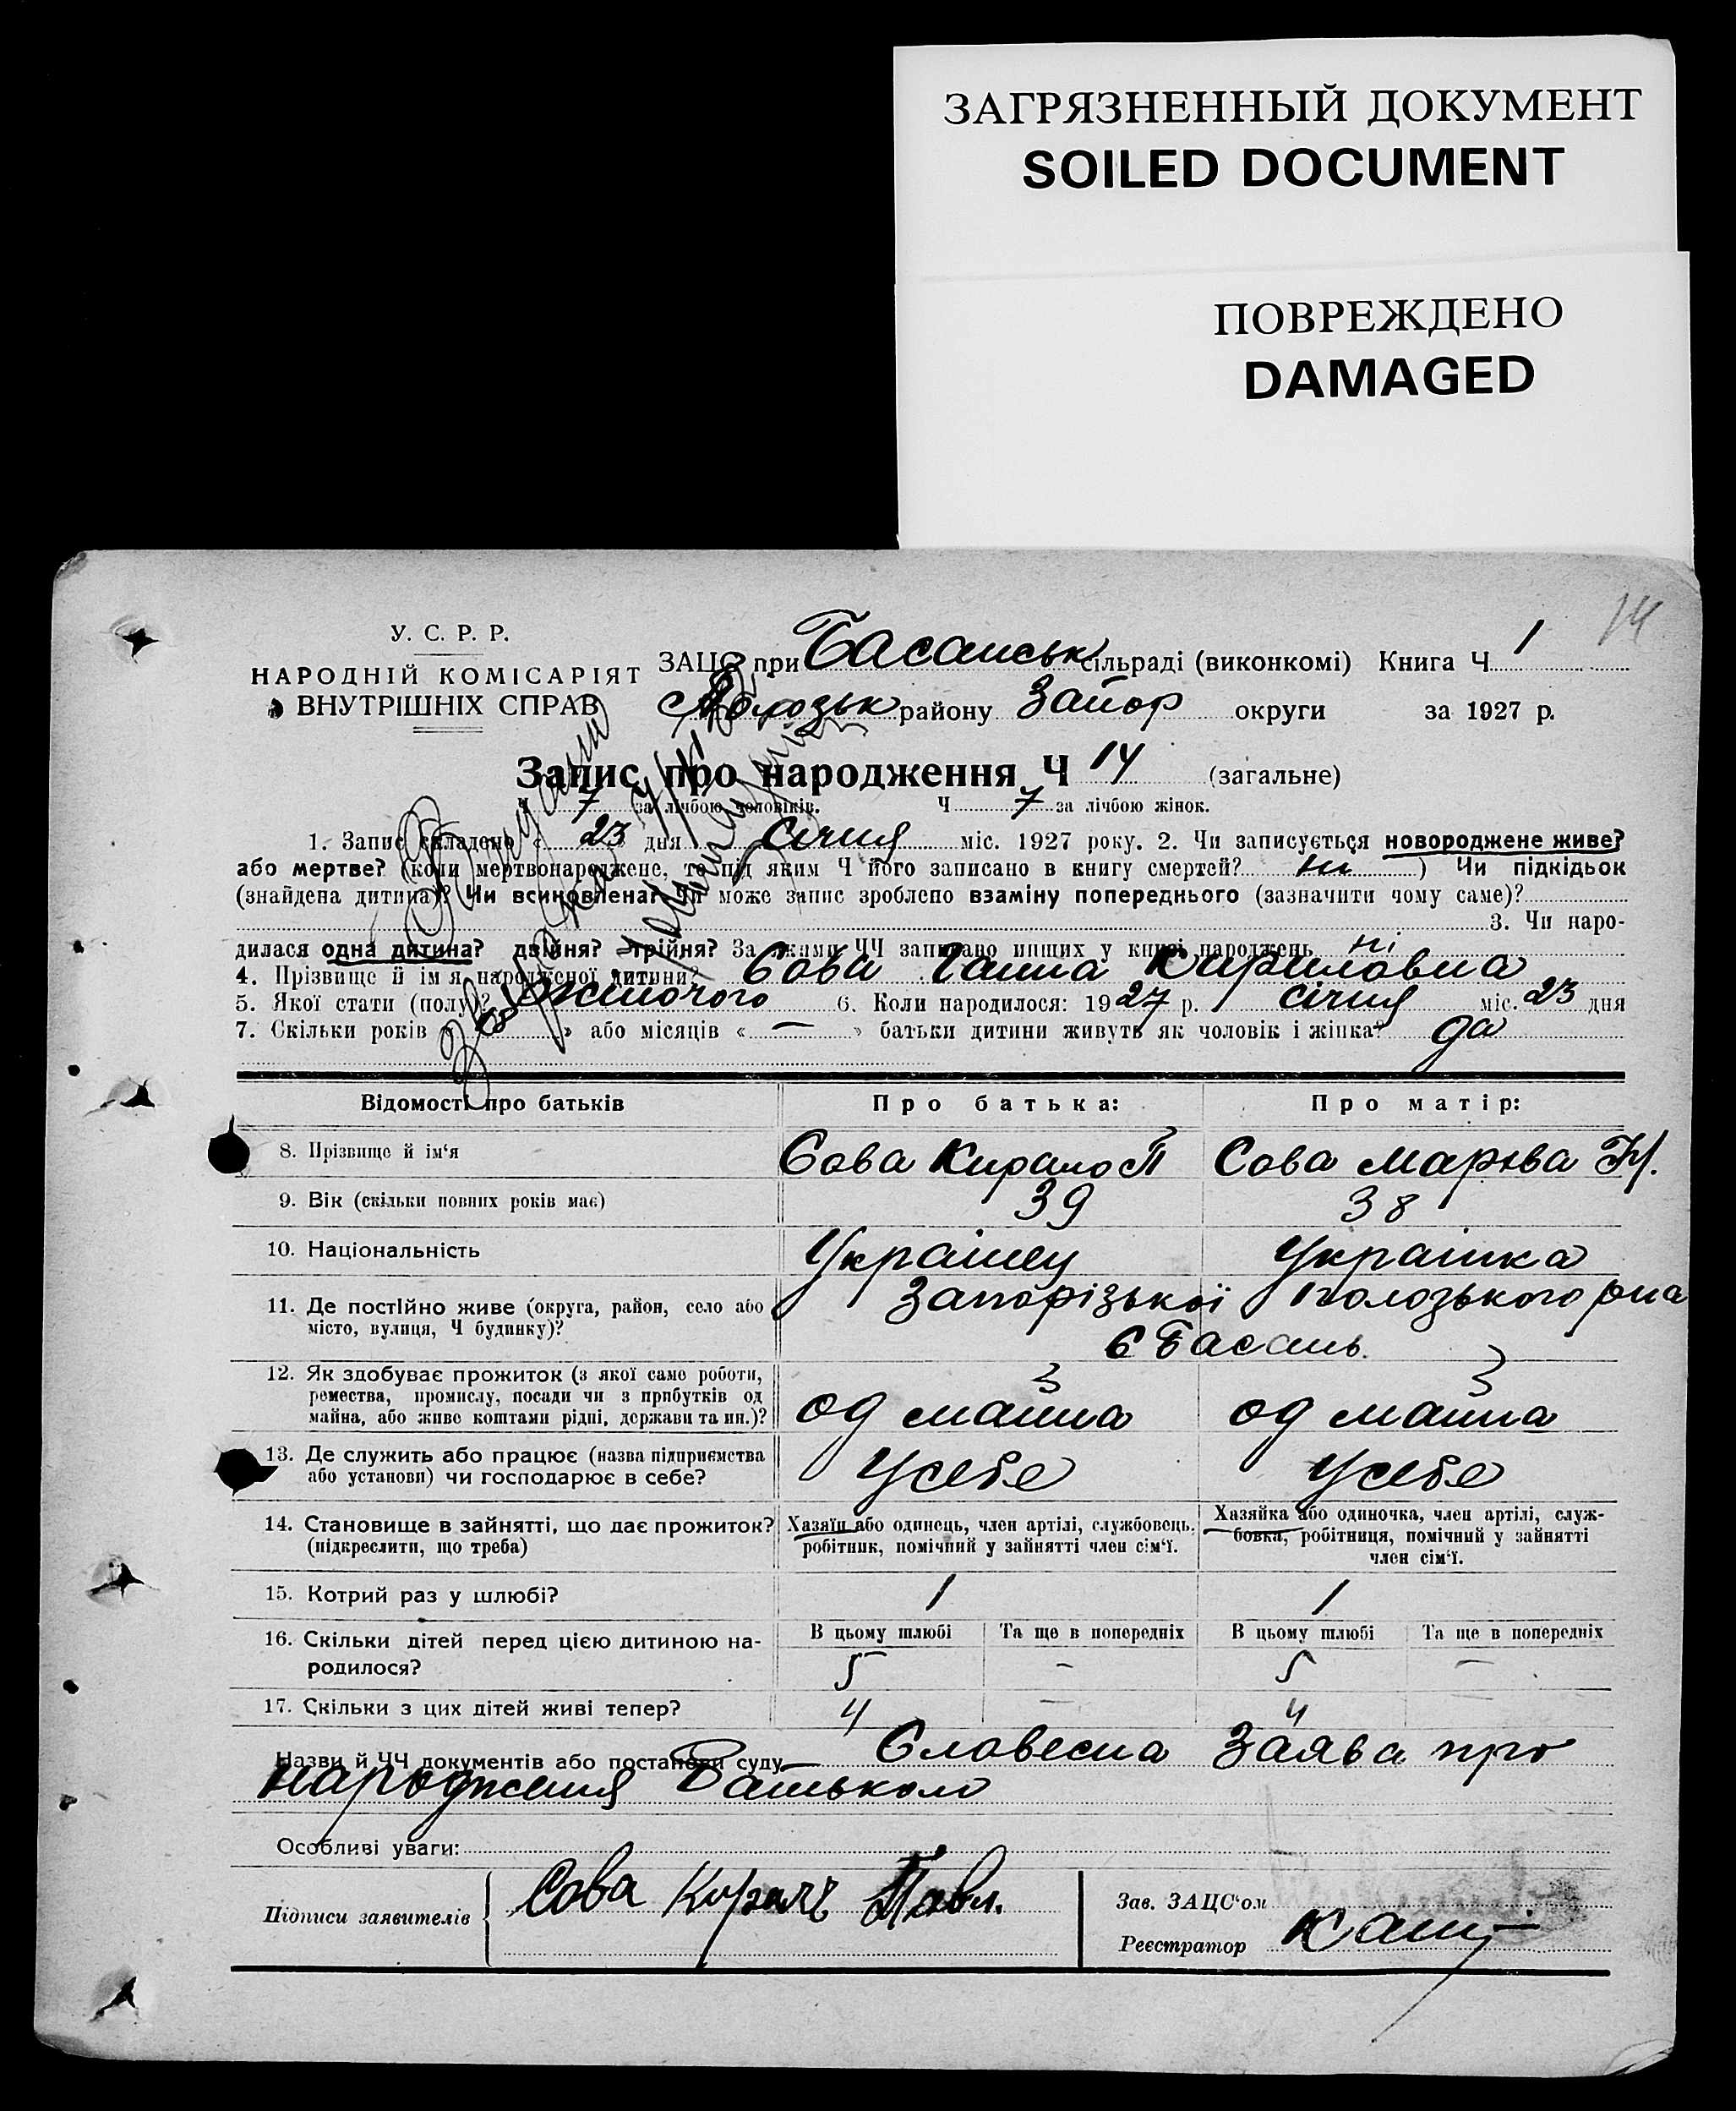 ЗАГРЯЗНЕННЫЙ ДОКУМЕНТ
SOILED DOCUMENT
ПОВРЕЖДЕНО
DAMAGED
14
У. С. Р. Р.
НАРОДНІЙ КОМІСАРІЯТ
ВНУТРІШНІХ СПРАВ
ЗАЦС при Басанськ сільраді (виконкомі) Книга Ч 1
району Запор округи за 1927 р.
Запис про народження Ч 14 (загальне)
Ч 7 за лічбою чоловіків. Ч 7 за лічбою жінок.
1. Запис складено « 23 дня січня міс. 1927 року. 2. Чи записується новороджене живе?
або мертве? (коли мертвонароджене, то під яким Ч його записано в книгу смертей? ні ) Чи підкідьок
(знайдена дитина)? Чи всиновлена? Чи може запис зроблено взаміну попереднього (зазначити чому саме)?
3. Чи наро-
дилася одна дитина? двійня? трійня? За якими ЧЧ записано инших у книзі народжень ні
4. Прізвище й ім'я народженої дитини? Сова Ганна Кириловна
5. Якої стати (полу)? жіночого 6. Коли народилося: 1927 р. січня міс. 23 дня
7. Скільки років « 18 » або місяців « — » батьки дитини живуть як чоловік і жінка? да
Відомості про батьків Про батька: Про матір:
8. Прізвище й ім'я Сова Кирило П Сова Марва
9. Вік (скільки повних років має) 39 38
10. Національність Українец Українка
11. Де постійно живе (округа, район, село або Запорізької Пологзького рна
місто, вулиця, Ч будинку)? С Басань
12. Як здобуває прожиток (з якої саме роботи,
ремества, промислу, посади чи з прибутків од
майна, або живе коштами рідні, держави та ин.)? од майна од майна
13. Де служить або працює (назва підприємства
або установи) чи господарює в себе? У себе У себе
14. Становище в зайнятті, що дає прожиток? Хазяїн або одинець, член артілі, службовець, Хазяйка або одиночка, член артілі, служ-
(підкреслити, що треба) робітник, помічний у зайнятті член сім'ї. бовка, робітниця, помічний у зайнятті
член сім'ї.
15. Котрий раз у шлюбі? 1 1
16. Скільки дітей перед цією дитиною на- В цьому шлюбі Та ще в попередніх В цьому шлюбі Та ще в попередніх
родилося? 5 – 5 –
17. Скільки з цих дітей живі тепер? 4 – 4
Назви й ЧЧ документів або постанови суду Словесна Заява про
народження Батьком
Особливі уваги:
Підписи заявителів Сова Кирилъ Павл.
Зав. ЗАЦС'ом
Реєстратор